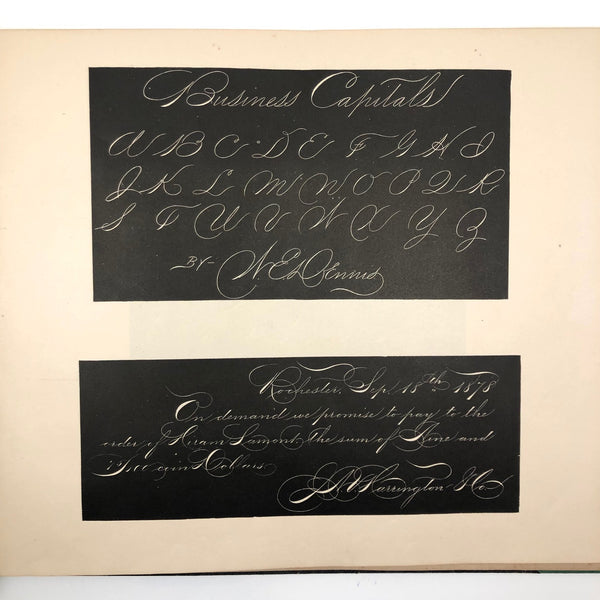 Business Capitals
A B C D E F G H I
J K L M N O P Q R
S T U V W X Y Z
BY W E Dennis
Rochester, Sep. 18th 1878
On demand we promise to pay to the
order of Hiram Lamont, the sum of Nine and
/100 Dollars
Warrington & Co.